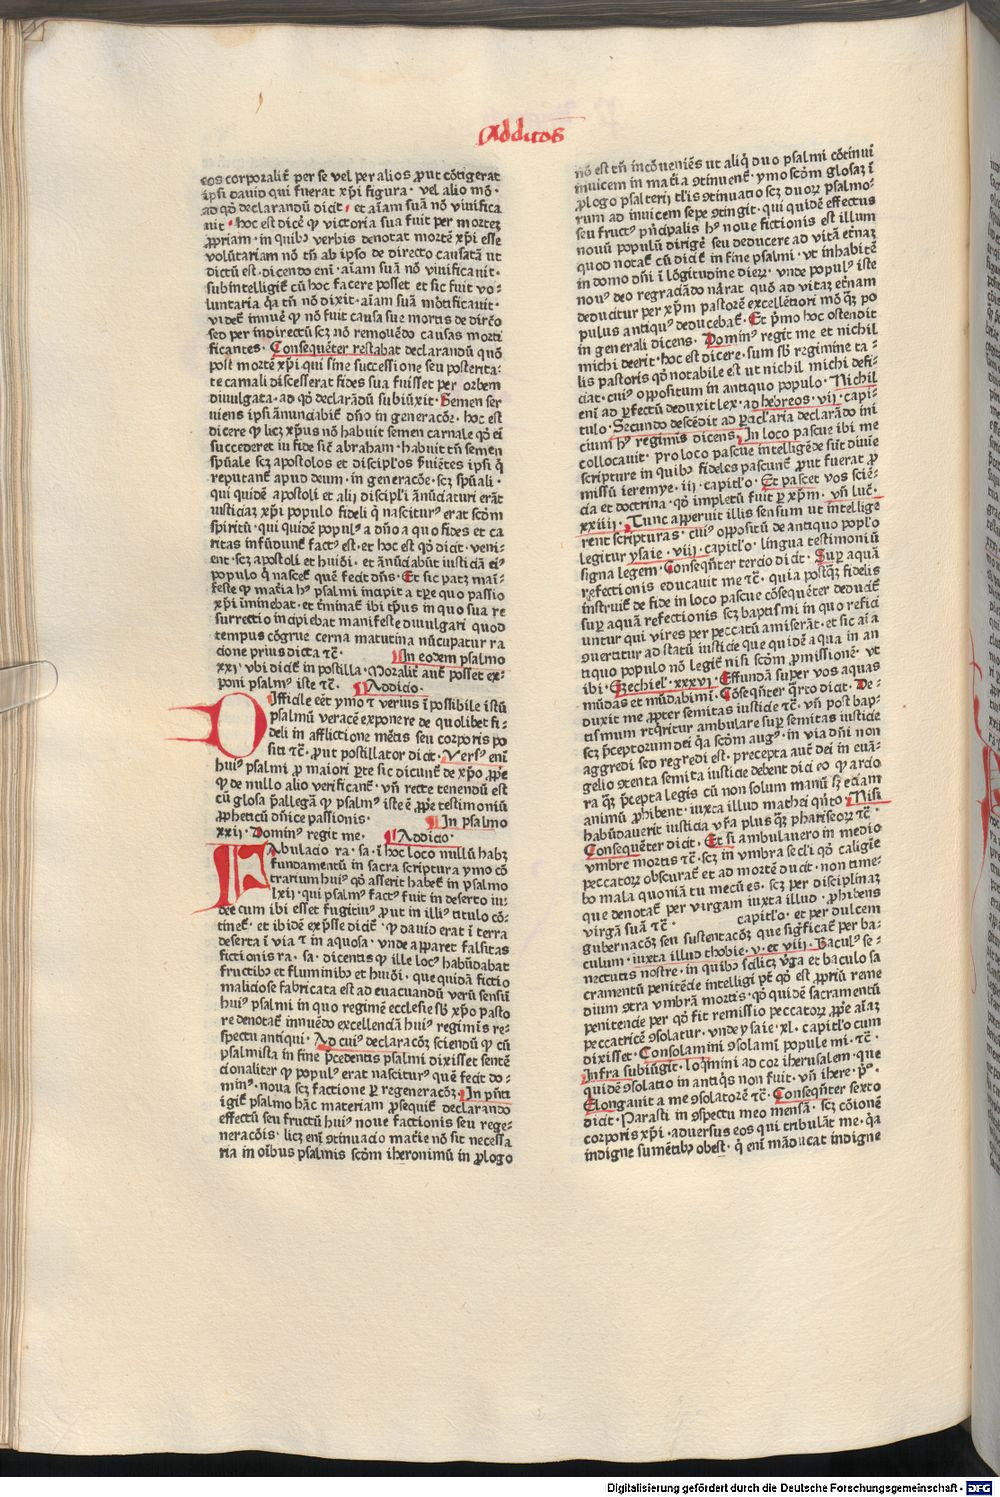 Additos
eos corporalit̛ per se vel per alios ꝓut cōtigerat
ip̄i dauid qui fuerat xp̄i figura· vel alio mō·
ad qd̄ declarandū dicit· et aīam suā nō viuifica
uit· hoc est dicē̛ ꝙ victoria sua fuit per mortez
ꝓpriam· in quibꝫ verbis denotat mortē xp̄i esse
volūtariam nō tn̄ ab ipso de directo causatā ut
dictū est· dicendo enī· aīam suā nō viuificauit·
subintelligit̛ cū hoc facere posset et sic fuit vo-
luntaria q̄a tn̄ nō dixit· aīam suā mōrtificauit·
videt̛ innuē̛ ꝙ nō fuit causa sue mortis de dircō
sed per indirectū scꝫ nō remouēdo causas morti
ficantes· Consequēter restabat declarandū quō
post mortē xp̄i qui sine successione seu posterita-
te carnali discesserat fides sua fuisset per orbem
diuulgata· ad qd̄ declarādū subiūxit· Semen ser
uiens ipsi ānunciabit̛ dn̄o in generacōe̛· hoc est
dicere ꝙ licꝫ xp̄us nō habuit semen carnale qd̄ ei
succederet iu fide sic̄ abraham· habuit tn̄ semen
sp̄uale scꝫ apostolos et discipl̛os ẜuiētes ipsi q̄
reputant̛ apud deum· in generacōe· scꝫ sp̄uali·
qui quidē apostoli et alij discipl̛i ānūciaturi erāt
iusticiaꝫ xp̄i populo fideli q̄ nascitur9 erat scd̄m
spiritū· qui quidē popul9 a dn̄o a quo fides et ca
ritas infūdunt̛ fact9 est· et hoc est qd̄ dicit· veni-
ent· scꝫ apostoli et huiōi· et ānūciabūt iusticiā ei9
populo q̄ nascet̛ quē fecit dn̄s· Et sic patꝫ maī-
feste ꝙ mat̛ia h9 psalmi incipit a tꝑe quo passio
xp̄i iminebat· et t̛minat̛ ibi tp̄us in quo sua re
surrectio incipiebat manifeste diuulgari quod
tempus cōgrue cerua matutina nūcupatur ra
cione prius dicta ⁊c̄· In eodem psalmo
xxi· vbi dicit̛ in postilla· Moralit̛ aut̄ posset ex-
poni psalm9 iste ⁊c̄· Addicio·
Difficile eēt ymo ⁊ verius īpossibile istū
psalmū veracē exponere de quolibet fi-
deli in afflictione mētis seu corporis po
siti ⁊c̄· ꝓut postillator dicit· Vers9 enī
hui9 psalmi ꝓ maiori ꝑte sic dicunt̛ de xp̄o ꝓpͥe
ꝙ de nullo alio verificant̛· vn̄ recte tenendū est
cū glosa p̄allegā ꝙ psalm9 iste ē ꝓpͥe testimoniū
ꝓpheticū dn̄ice passionis· In psalmo
xxij· Domin9 regit me· Addicio·
Fabulacio ra· sa· ī hoc loco nullū habꝫ
fundamentū in sacra scriptura ymo cō
trarium hui9 qd̄ asserit habet̛ in psalmo
lxij· qui psalm9 fact9 fuit in deserto iu-
dee cum ibi esset fugitiu9 ꝓut in illi9 titulo cō-
tinet̛· et ibidē exp̄sse dicit̛· ꝙ dauid erat ī terra
deserta ī via ⁊ in aquosa· vnde apparet falsitas
fictionis ra· sa· dicentis ꝙ ille loc9 habūdabat
fructibꝫ et fluminibꝫ et huiōi· que quidā fictio
maliciose fabricata est ad euacuandū verū sensū
hui9 psalmi in quo regimē ecclesie sb̄ xp̄o pasto
re denotat̛ innuēdo excellenciā hui9 regimīs re-
spectu antiqui· Ad cui9 declaracōꝫ sciendū ꝙ cū
psalmista in fine p̄cedentis psalmi dixisset sentē
cionaliter ꝙ popul9 erat nascitur9 quē fecit do-
min9· noua scꝫ factione ꝑ regeneracōꝫ· In pn̄ti
igit̛ psalmo hāc materiam ꝓsequit̛ declarando
effectū seu fructū hui9 noue factionis seu rege-
neracōis· licꝫ enī ꝯtinuacio mat̛ie nō sit necessa
ria in oībus psalmis scd̄m iheronimū in ꝓlogo
nō est tn̄ incōueniēs ut aliq̄ duo psalmi cōtinui
inuicem in mat̛ia ꝯtinuent̛· ymo scd̄m glosaꝫ ī
ꝓlogo psalterij tl̛is ꝯtinuatio scꝫ duoꝝ psalmo-
rum ad inuicem sepe ꝯtingit· qui quidē effectus
seu fruct9 pn̄cipalis h9 noue fictionis est illum
nouū populū dirigē̛ seu deducere ad vitā et̛naꝫ
quod notat̛ cū dicit̛ in fine psalmi· vt inhabitē
in domo dn̄i ī lōgitudine dieꝝ· vnde popul9 iste
nou9 deo regraciādo nārat quō ad vitaꝫ et̛nam
deducitur per xp̄m pastorē excellēciori mō q̄ꝫ po
pulus antiqu9 deducebat̛· Et p̄mo hoc ostendit
in generali dicens· Domin9 regit me et nichil
michi deerit· hoc est dicere· sum sb̄ regimine ta-
lis pastoris qd̄ notabile est ut nichil michi defi-
ciat· cui9 oppositum in antiquo populo· Nichil
enī ad ꝑfectū deduxit lex· ad hebreos· vij· capi-
tulo· Secundo descēdit ad ꝑticl̛aria declarādo ini
cium h9 regiminis dicens· In loco pascue ibi me
collocauit· pro loco pascue intelligēde sūt diuie
scripture in quibꝫ fideles pascunt̛ ꝓut fuerat ꝓ
missū ieremye· iij· capitl̛o· Et pascet vos sciē-
cia et doctrina· qd̄ impletū fuit ꝑ xp̄m· vn̄ luc̄·
xxiiij· Tunc apperuit illis sensum ut intellige
rent scripturas· cui9 oppositū de antiquo popl̛o
legitur ysaie· viij· capitl̛o· lingua testimoniū
signa legem· Conseqn̄ter tercio dicit· Suꝑ aquā
refectionis educauit me ⁊c̄· quia postq̄ꝫ fidelis
instruit̛ de fide in loco pascue cōsequēter deducit̛
suꝑ aquā refectionis scꝫ baptismi in quo refici
untur qui vires per peccatū amiserāt· et sic aīa
ꝯuertitur ad statū iusticie que quidē aqua in an
tiquo populo nō legit̛ nisi scd̄m ꝓmissionē· vt
ibi· Ezechiel̛· xxxvi· Effundā super vos aquas
mūdas et mūdabimī· Cōseqn̄ter q̄rto dicit· De-
duxit me ꝓpter semitas iusticie ⁊c̄· vn̄ post bap-
tismum reqͥritur ambulare suꝑ semitas iusticie
scꝫ p̄ceptorum dei q̄a scd̄m aug9· in via dn̄i non
aggredi sed regredi est· precepta aut̄ dei in euā-
gelio ꝯtenta semita iusticie debent dici eo ꝙ arcio
ra q̄ꝫ p̄cepta legis cū non solum manū sꝫ eciam
animū ꝓhibent· iuxta illud mathei qn̄to· Nisi
habūdauerit iusticia vr̄a plus q̄ꝫ phariseoꝝ ⁊c̄·
Consequēter dicit· Et si ambulauero in medio
vmbre mortis ⁊c̄· scꝫ in vmbra secl̛i qd̄ caligie
peccatoꝝ obscurat̛ et ad mortē ducit· non time-
bo mala quoniā tu mecū es· scꝫ per disciplinaꝫ
que denotat̛ per virgam iuxta illud· ꝓhibens
virgā suā ⁊c̄· capitl̛o· et per dulcem
gubernacōꝫ seu sustentacōꝫ que sigͥficat̛ per ba-
culum· iuxta illud thobie· v· et viij· Bacul9 se-
nectutis nostre· in quibꝫ scilicꝫ v̛ga et baculo sa
cramentū penitēcie intelligi pt̄· qd̄ est ꝓpriū reme
dium ꝯtra vmbrā mortis· qd̄ quidē sacramentū
penitencie per qd̄ fit remissio peccatoꝝ ꝓpͥe aīaꝫ
peccatricē ꝯsolatur· vnde ysaie· xl· capitl̛o cum
dixisset· Consolamini ꝯsolamī popule mi· ⁊c̄·
Infra subiūgit· loqͥmini ad cor iherusalem· que
quidē ꝯsolatio in antiqͥs non fuit· vn̄ ihere· pͦ·
Elongauit a me ꝯsolatorē ⁊c̄· Conseqn̄ter sexto
dicit· Parasti in ꝯspectu meo mensā· scꝫ cōionē
corporis xp̄i· aduersus eos qui tribulāt me· q̄a
indigne sumētibꝫ obest· q̄ enī māducat indigne
Digitalisierung gefördert durch die Deutsche Forschungsgemeinschaft - DFG